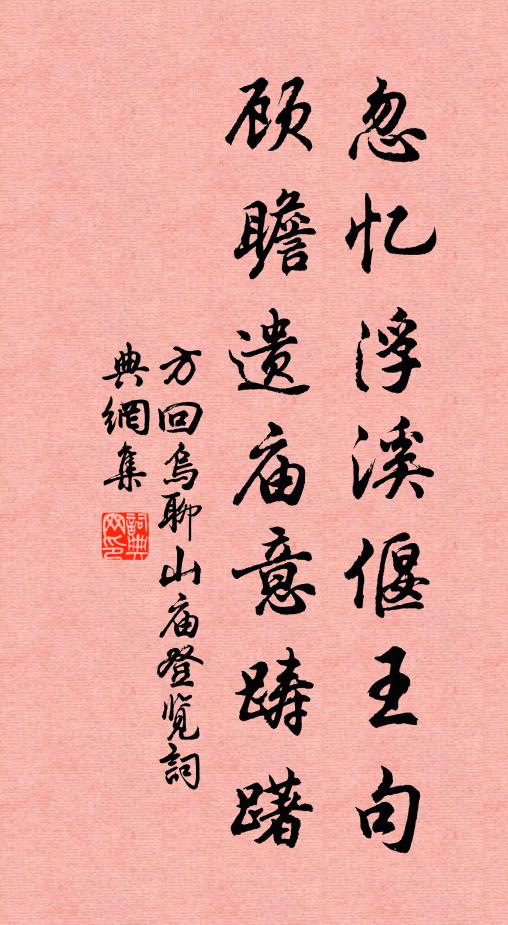 忽忆浮溪偃王句
顾瞻遗庙意踌躇
方回乌聊山庙登览词
典網集
詞典網印